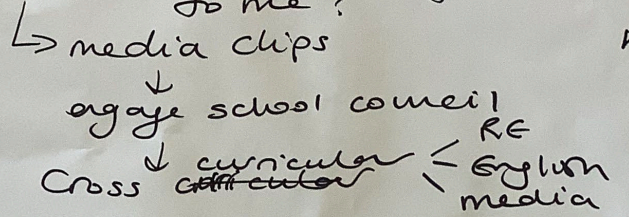 to me?
↳ media clips
↓
engage school council
↓ curricular < RE
Cross - English
\ media